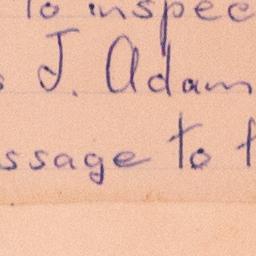 to inspec
s J. Adam
ssage to t